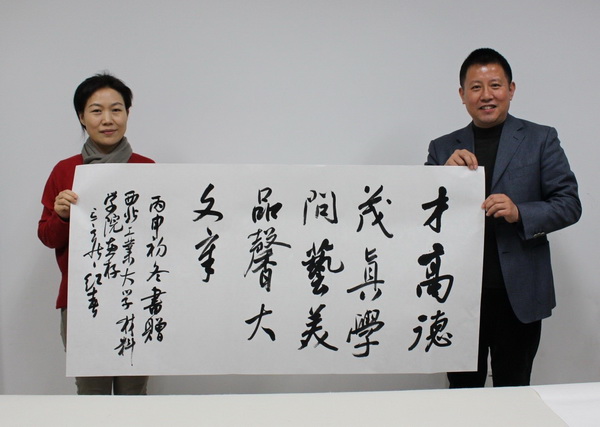 才高德
茂真學
問藝美
品馨大
文章
丙申初冬書贈
西北工業大学材料
学院惠存